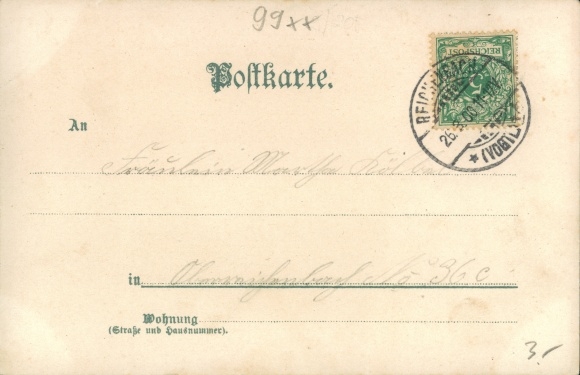 99xx
Postkarte.
REICHSPOST
5
REICHENBACH
(VOGTL.)
An
Fräulein Martha
in Oberreichenbach No 36 c
Wohnung
(Straße und Hausnummer).
3.-